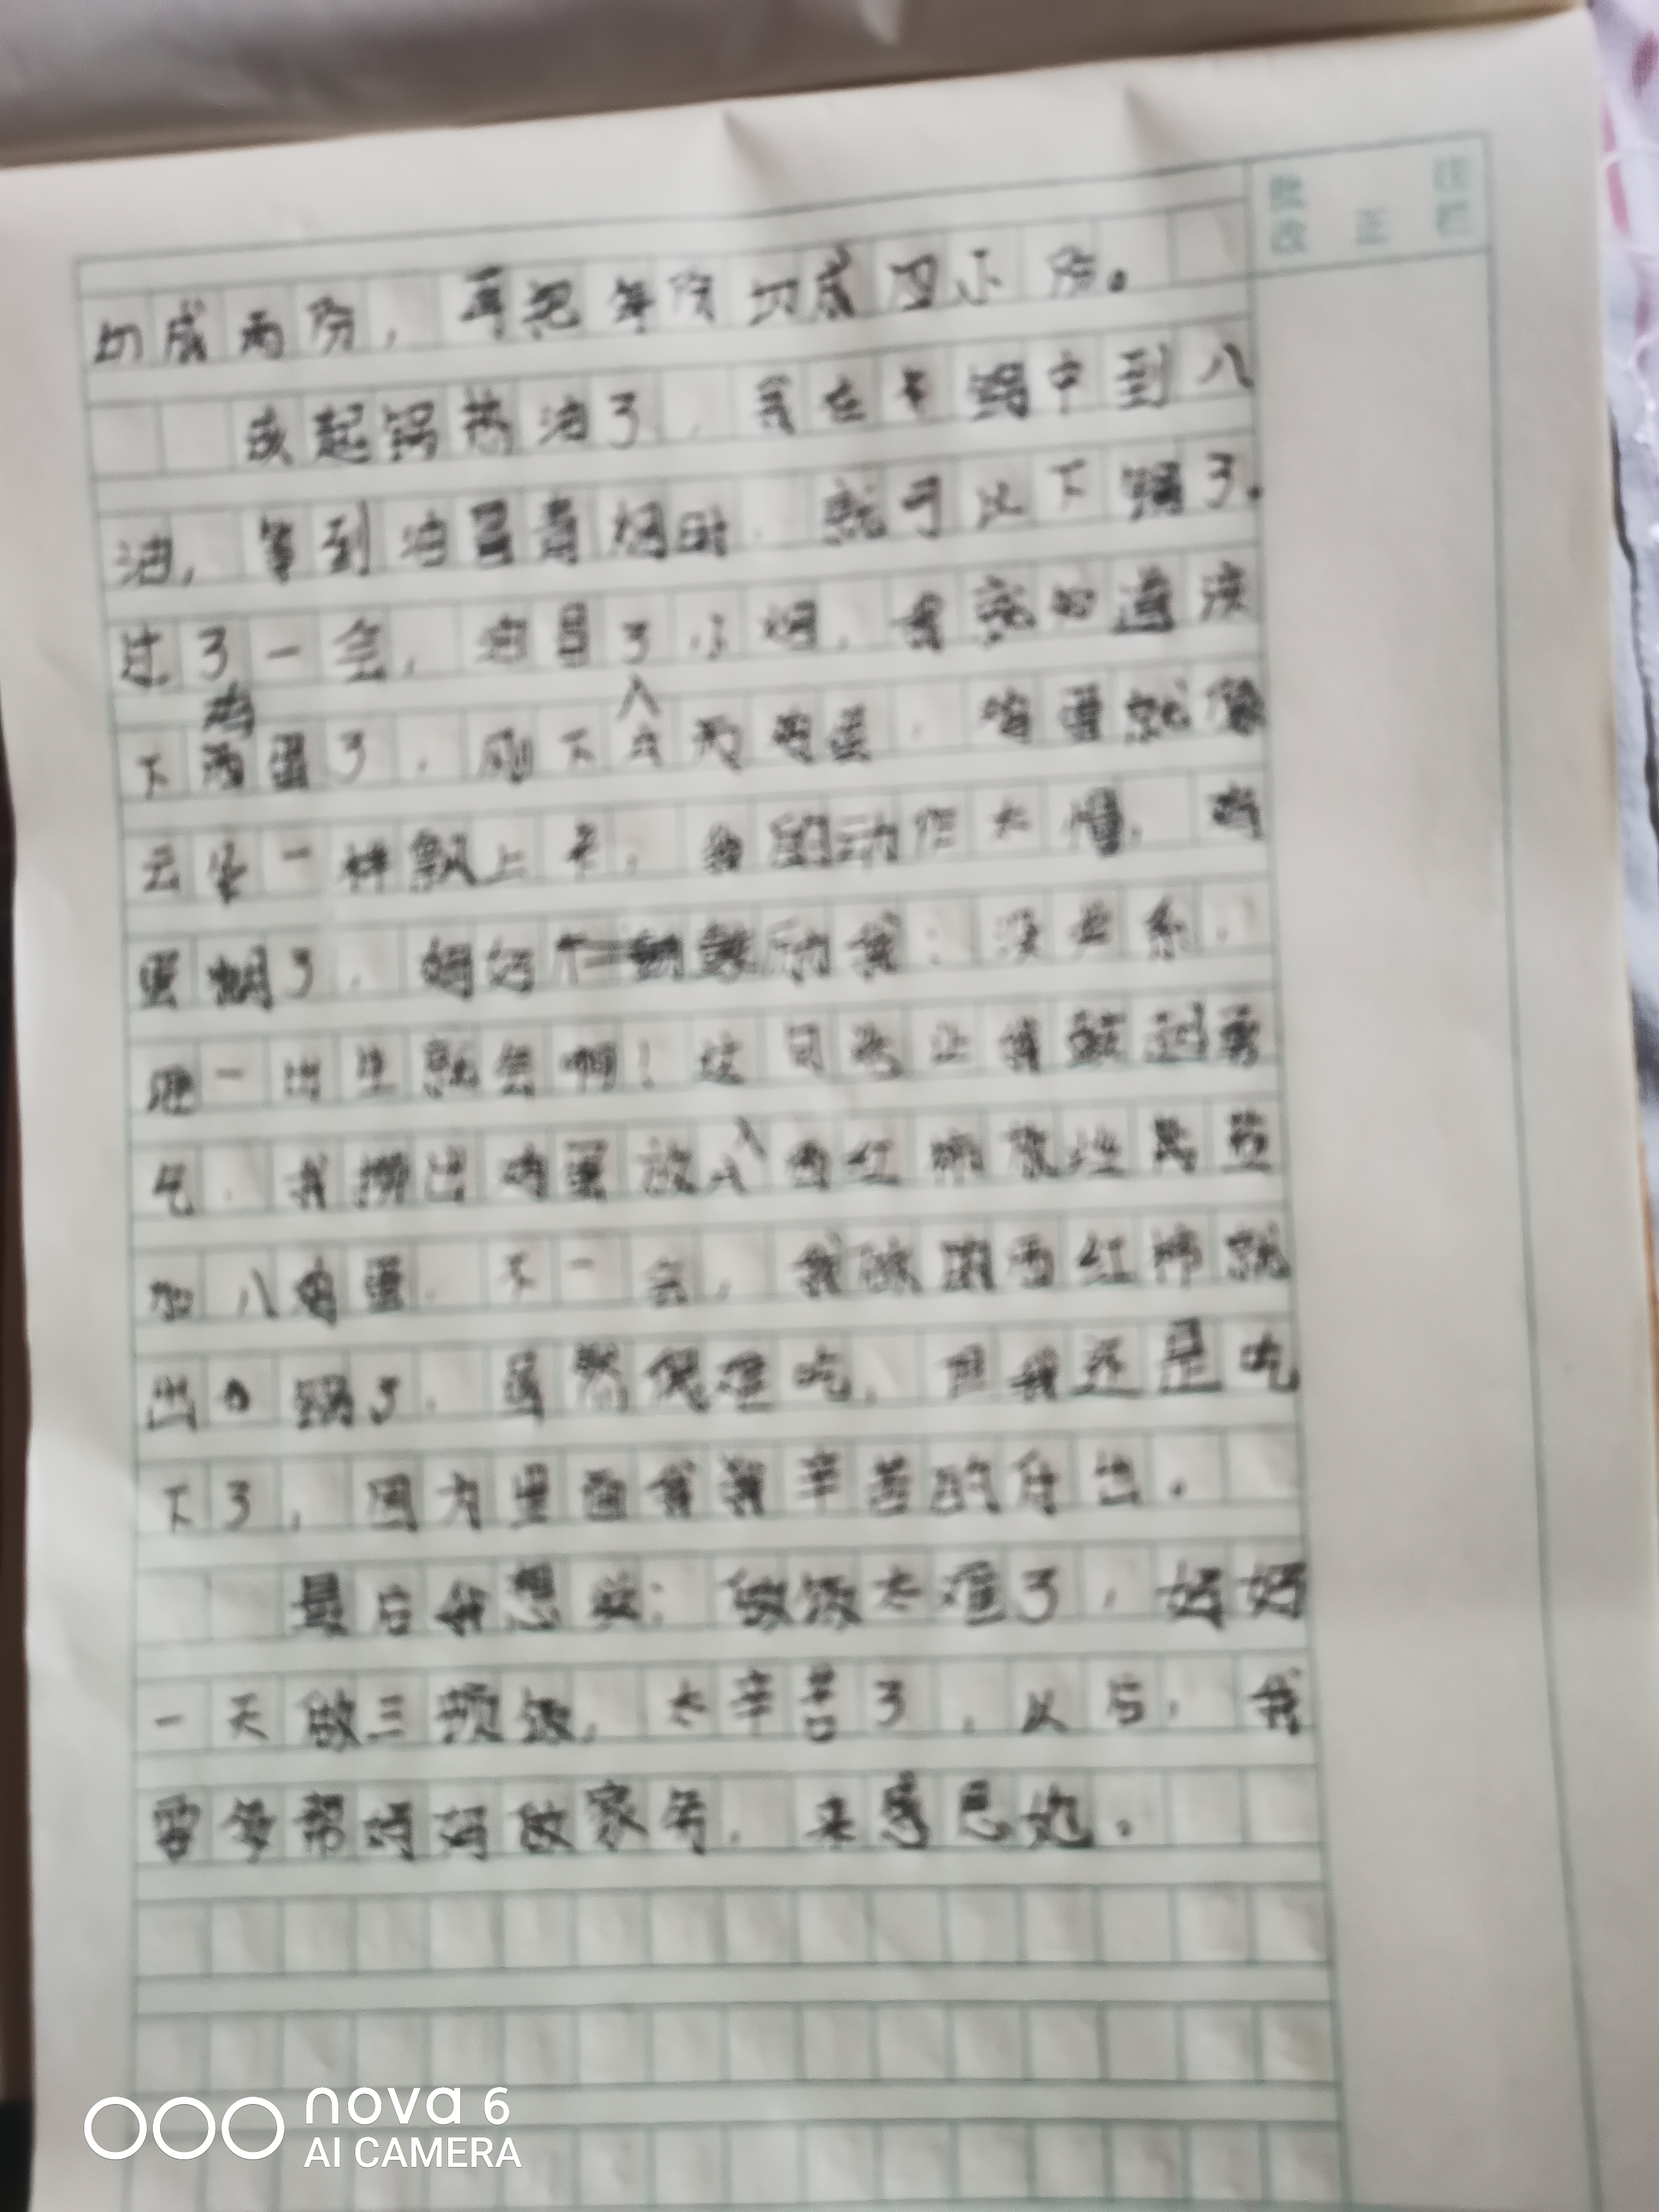 批 注
改 正 栏
切成两份，再把每份切成四小份。
该起锅热油了，我在锅中到八
油，等到油冒青烟时，就可以下锅了。
过了一会，油冒了小烟，我就知道该
下鸡蛋了，刚下入鸡蛋，鸡蛋就像
云朵一样飘上来，我的动作太慢，鸡
蛋糊了，妈妈鼓励我：没关系，
谁一出生就会啊！这句话让我鼓起勇
气，我捞出鸡蛋放入西红柿
加八鸡蛋，不一会，我做的西红柿就
出锅了，虽然很难吃，但我还是吃
下了，因为里面有我辛苦的付出。
最后我想说：做饭太难了，妈妈
一天做三顿饭，太辛苦了，以后，我
要多帮妈妈做家务，来感恩她。
nova 6
AI CAMERA